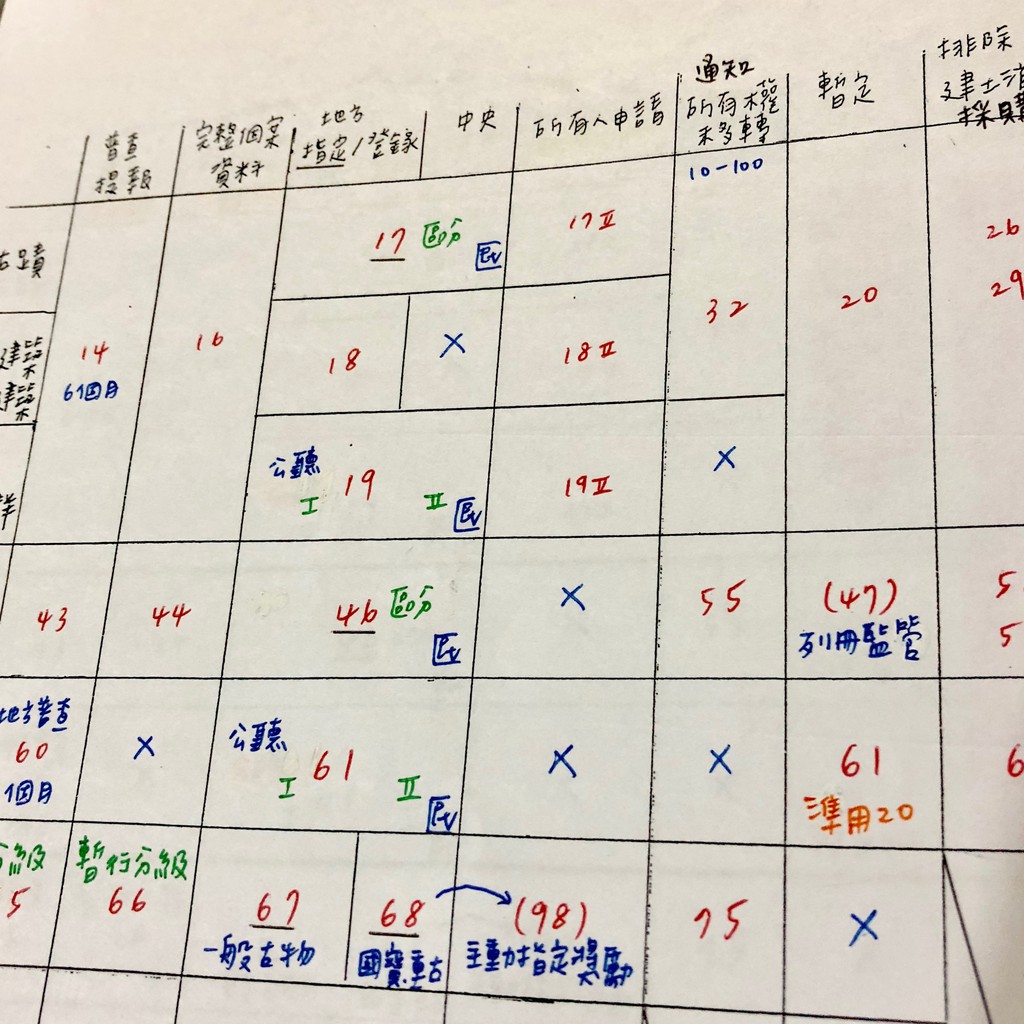 普查
提報
完整個案
資料
地方
指定/登錄
中央
所有人申請
通知
所有權
未移轉
10-100
暫定
排除
建土消
採購
古蹟
17 區分
民
17 II
26
29
建築
建築
14
6個月
16
18
X
18 II
32
20
群
公聽
I 19 II
民
19 II
X
43
44
46 區分
民
X
55
(47)
列冊監管
5
5
地方普查
60
1個月
X
公聽
I 61 II
民
X
X
61
準用20
6
分級
5
暫行分級
66
67
一般古物
68
國寶.重古
(98)
主動指定獎勵
75
X